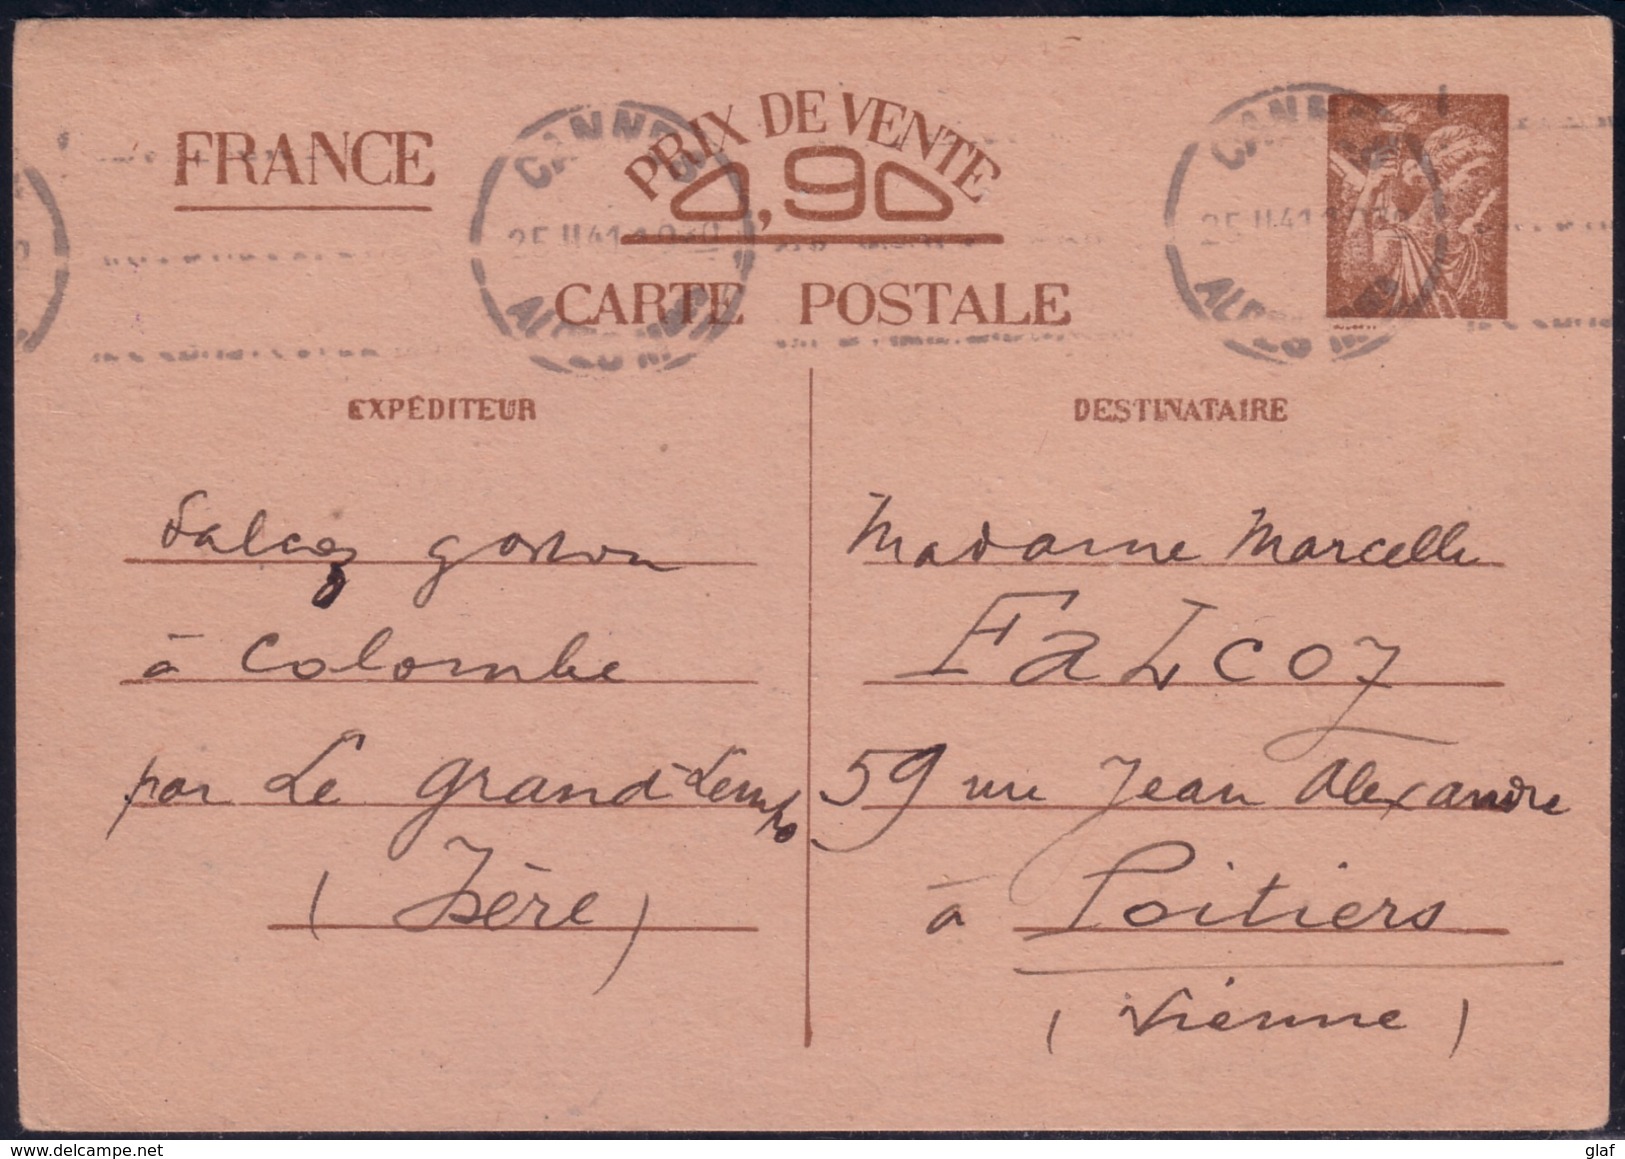 FRANCE
PRIX DE VENTE
0,90
CARTE POSTALE
CANNES
25 II 41
CANNES
25 II 41
EXPÉDITEUR
Falcoz gaston
à Colombe
par Le grand-Lemps
(Isère)
DESTINATAIRE
Madame Marcelle
FALCOZ
59 rue Jean Alexandre
à Poitiers
(Vienne)
glaf
www.delcampe.net